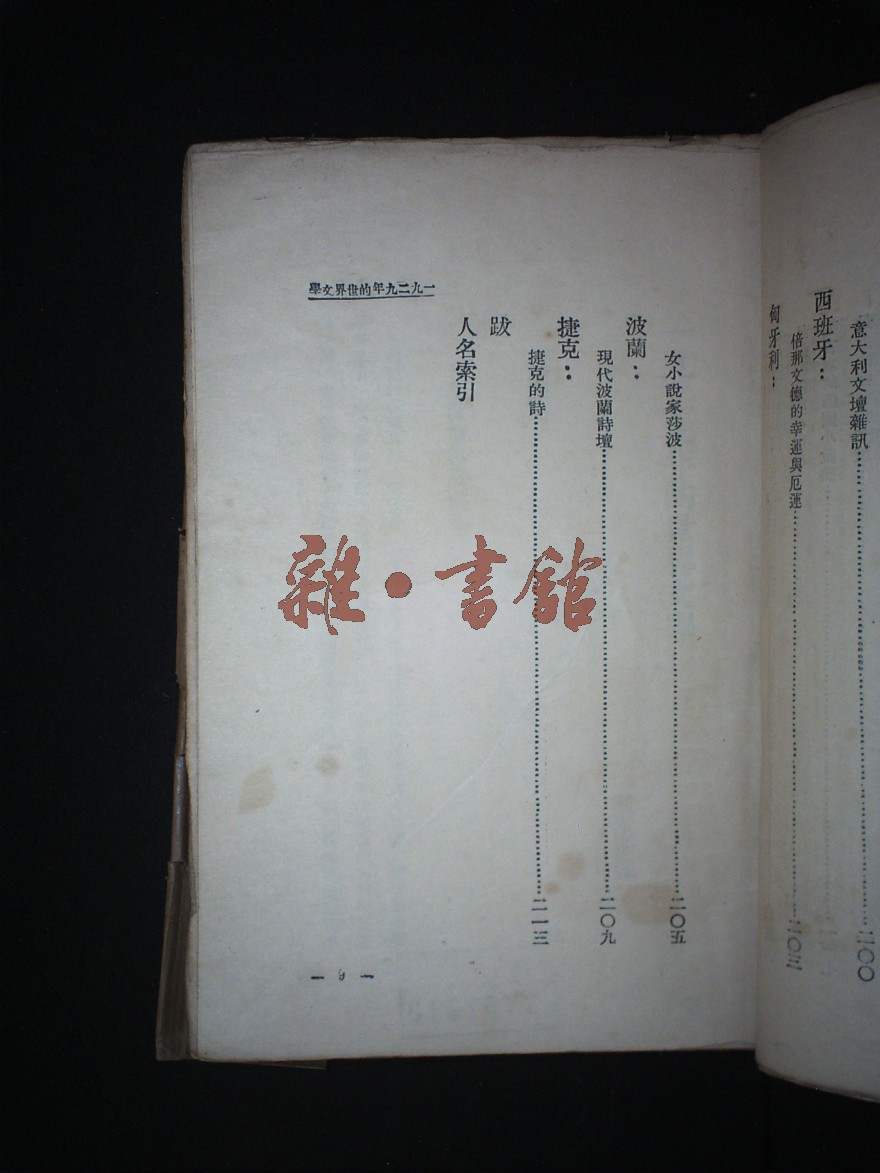 意大利文壇雜訊……二〇〇
西班牙：
倍那文德的幸運與厄運……二〇三
匈牙利：
女小說家莎波……二〇五
波蘭：
現代波蘭詩壇……二〇九
捷克：
捷克的詩……二一三
跋
人名索引
學文界世的年九二九一
— 9 —
雜·書館